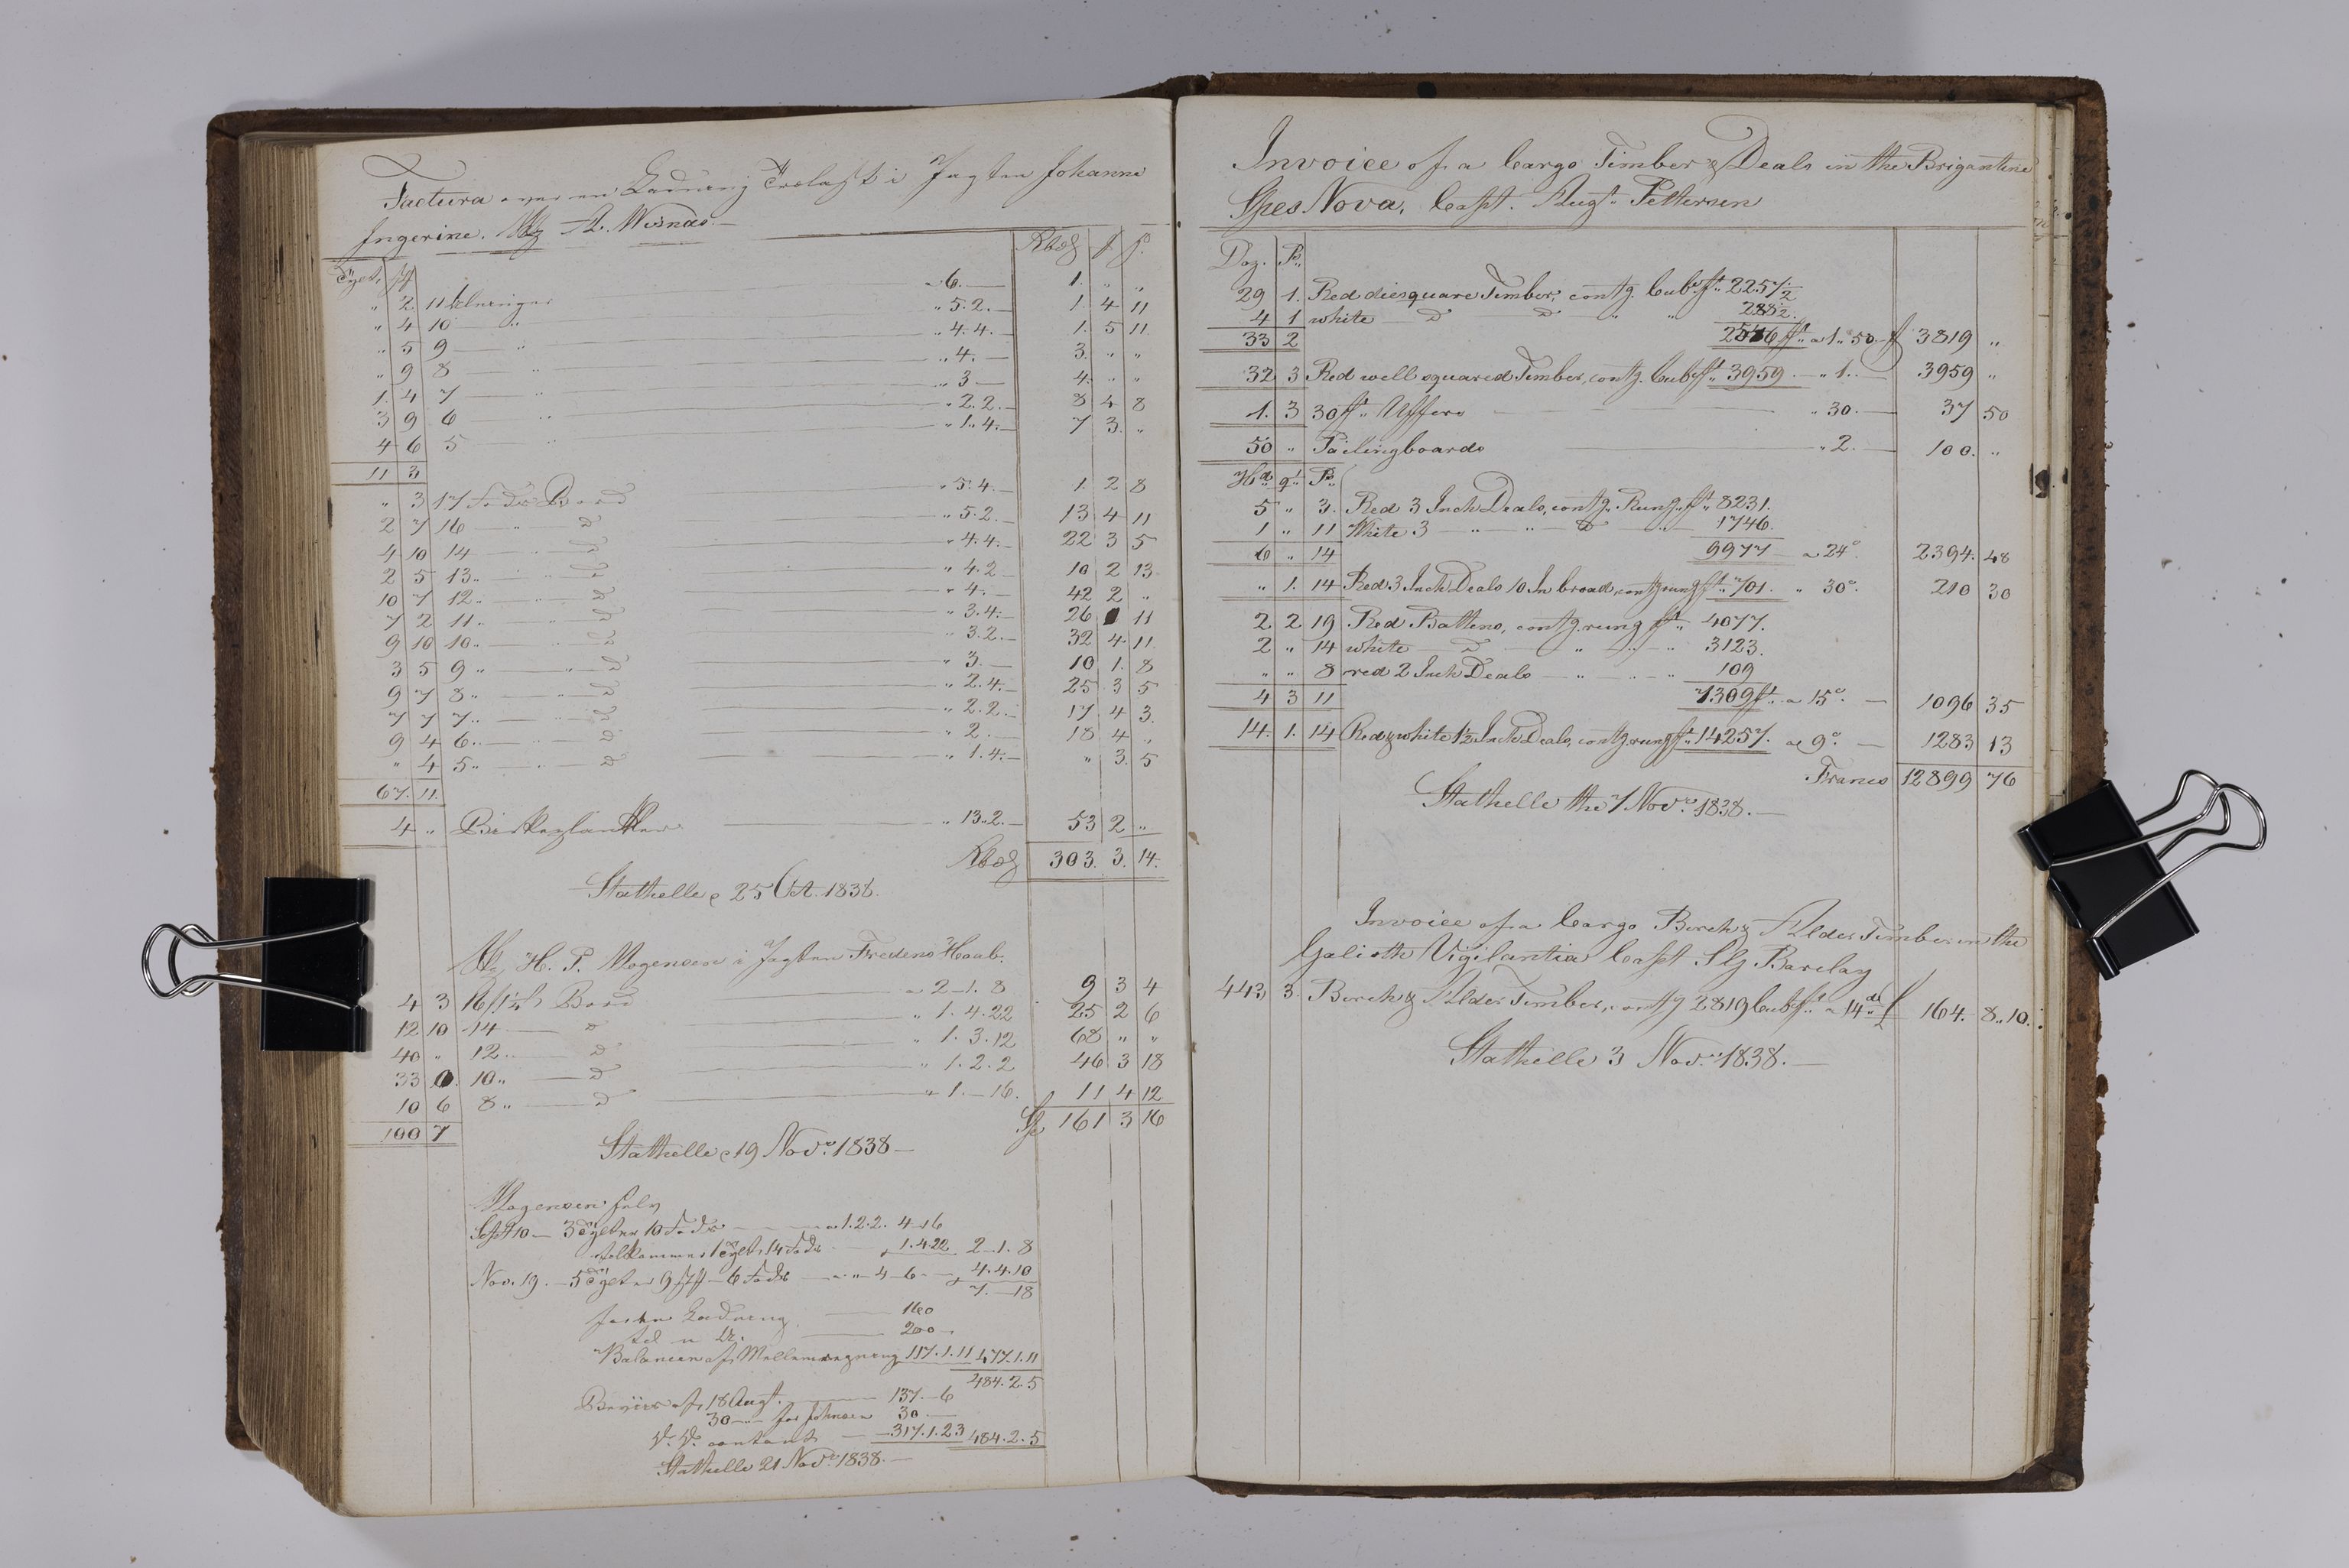 Factura over en Ladning Trælast i Jagten Johanne
Ingerine, A. Wisnæs
Tylt.
" 2 11 " 6. — 1. " "
" 4 10 — " " 5.2. — 1 4 11
" 5 9 — " " 4.4. — 1. 5 11.
" 9 8 — " " 4. — 3. " "
1. 4 7 — " " 3 — 4. " "
3 9 6 " " 2.2. — 8 4 8
4 6 5 " " 1.4. — 7 3. "
11 3
" 3 17 Fods Bord " 5.4. — 1. 2 8
2 7 16 — " — D " 5.2. — 13 4 11
4 10 14 — " — D " 4.4. — 22 3 5
2 5 13.. — " — D " 4.2 — 10 2 13.
10 7 12.. — " — D " 4. — 42 2 "
7 2 11.. — " — D " 3.4. — 26 11
9 10 10.. — " — D " 3.2. — 32 4 11
3 5 9 " — " — D " 3. — 10 1. 8
9 7 8 " — " — D " 2.4. — 25 3 5
7 7 7.. — " — D " 2.2. — 17 4 3.
9 4 6.. — " — D " 2. — 18 4 "
" 4 5.. — " — D " 1.4. — " 3. 5
67. 11.
4 " Birkeplanker " 13.2. — 53 2 "
303. 3. 14.
Stathelle 25 Oct. 1838.
H. P. Mogensen i Jagten Fredens Haab.
4 3 16 f 1¼ Bord a 2 — 1. 8 9 3 4
12 10 14 — D " 1. 4. 22 25 2 6
40 " 12.. — D " 1. 3. 12 68 " "
33 10.. — D " 1. 2. 2 46 3 18
10 6 8.. — D " 1. — 16. 11 4 12
100 7 161 3 16
Stathelle 19 Nov. 1838 —
Mogensen
Sept 10 — 3 Tylter 10 Fods — a 1.2.2. 4 — 6
1 Tylt 14 Fods 1.4.22 2 — 1. 8
Nov. 19. — 5 Tylter 9 — 6 Fods — a " 4 — 6 — 4.4.10
7. — 18
Ladning — 160
200 —
Balancen af Mellemregning 117.1.11 477.1.11
484.2.5
af 18 Aug. — 137. — 6
30 — for Johnsen 30 —
contant — 317.1.23 484.2.5
Stathelle 21 Nov. 1838. —
Invoice of a Cargo Timber & Deals in the Brigantine
Spes Nova, Capt. Augt. Pettersen
Doz. Ps.
29 1. Red diesquare Timber, contg. Cubft. 2257½
4 1 white — D — D — " " 288½.
33 2 2546 ft. a 1.. 50. f 3819 "
32 3 Red well squared Timber, contg. Cubft. 3959. — " 1. — 3959 "
1. 3 30 ft. Uffers — " 30. — 37 50
50 " Pailingboards — " 2. — 100. "
Hd. qr. Ps.
5 " 3. Red 3 Inch Deals, contg. Rung. ft. 8231.
1 " 11 White 3 — " " D — " 1746.
6 " 14 9977 — a 24c. 2394. 48
" 1. 14 Red 3 Inch Deals 10 In broad, contg rung ft. 701. " 30c. 210 30
2 2 19 Red Battens, contg. rung ft. 4077.
2 " 14 white — D — " " " 3123.
" " 8 red 2 Inch Deals — " — " 109
4 3 11 7309 ft. a 15c. — 1096 35
14. 1. 14 Red & white 1½ Inch Deals, contg. rung ft. 14257. a 9c. — 1283 13
Francs 12899 76
Stathelle the 7 Novr. 1838. —
Invoice of a Cargo Birch & Alder Timber in the
Galioth Vigilantia Capt Barclay
443 3. Birch & Alder Timber, contg 2819 Cubft. a 14d £ 164. — 8.. 10.
Stathelle 3 Novr. 1838. —